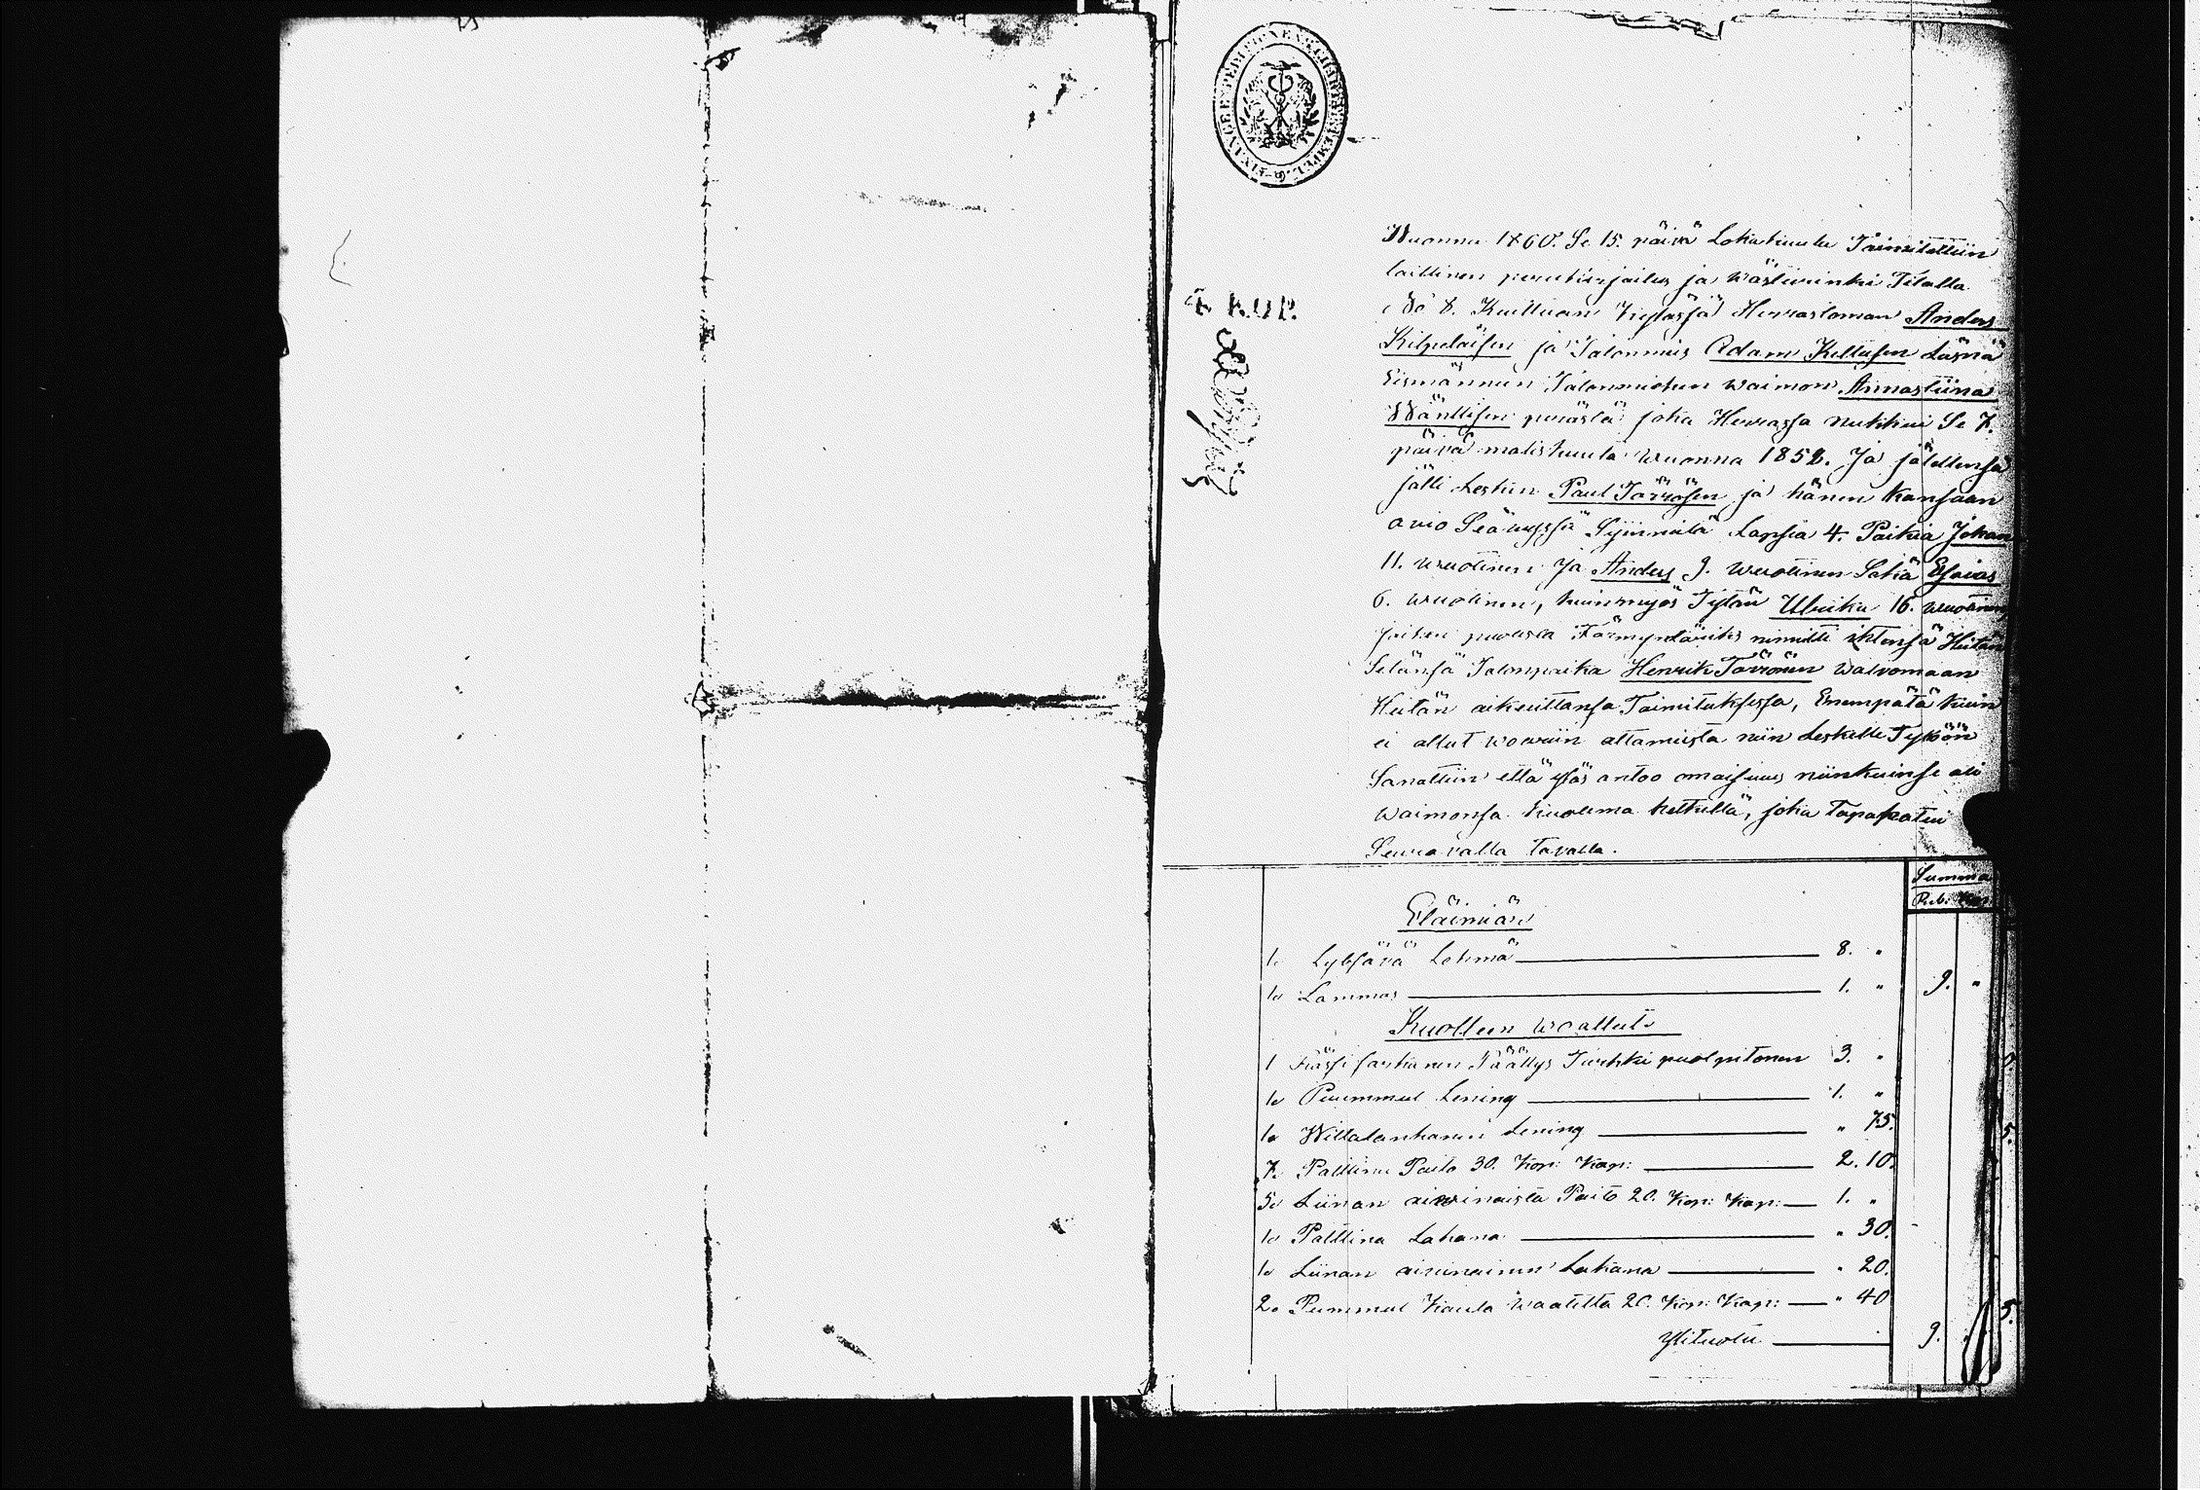 FINANCE EXPEDITIONENS CHARTÆ STEMPEL.
4 KOP.
Wuonna 1860. Se 15. päivä Lokakuuta Toimitettiin
laillinen perukirjoitus ja wäsliirinki Tilalla
No 8. Kuilluan kyläsjä Herrastoman Anders
Kilpeläisen ja Talonmies Adam Keltusen Läsnä
Eismännnin Talonmiehen waimon Annastiina
Wänttisen perästä joka Herrassa nukkui Se 7.
päivä maliskuuta wuonna 1858. Ja jälellensä
jätti Leskin Paul Törrösen ja hänen kansaan
avio Seäwyssä Syinnitä Lapsia 4. Poikia Johan
11. wuotinen Ja Anders 9. wuotinen Sekä Esaias
6. wuotinen, kuin myös Tytön Ulrika 16. wuotinen,
joiten puolesta Förmyndäriks nimitti itsensä Heitän
Setänsä Talonpoika Henrik Törrönen walvomaan
Heitän oikeuttansa Toimituksessa, Enempätä kuin
ei ollut woeruin ottamiista niin Leskelle Tykön
Sanottiin että ylös antoo omaisuus niinkuin se oli
waimonsa kuolema hetkellä, joka Tapahtui
Seuravalla tavalla.
Summa
Rub: Kop:
Eläimiä
1. Lybsävä Lehmä 8. "
1. Lammas 1. " 9. "
Kuolleen waatteet
1 Päällys Turkki puolpitonen 3. "
1. Puummul Lening 1. "
1. Lening " 75.
7. Palttina Paita 30. Kop: Kap: 2. 10.
5. Liinan aiwinaista Paito 20. Kop: Kap: 1. "
1. Palttina Lakana " 30.
1. Liinan aivinainen Lakana " 20.
2. Pummul Kaula waatetta 20. Kop: Kap: " 40
Ylituotu 9.